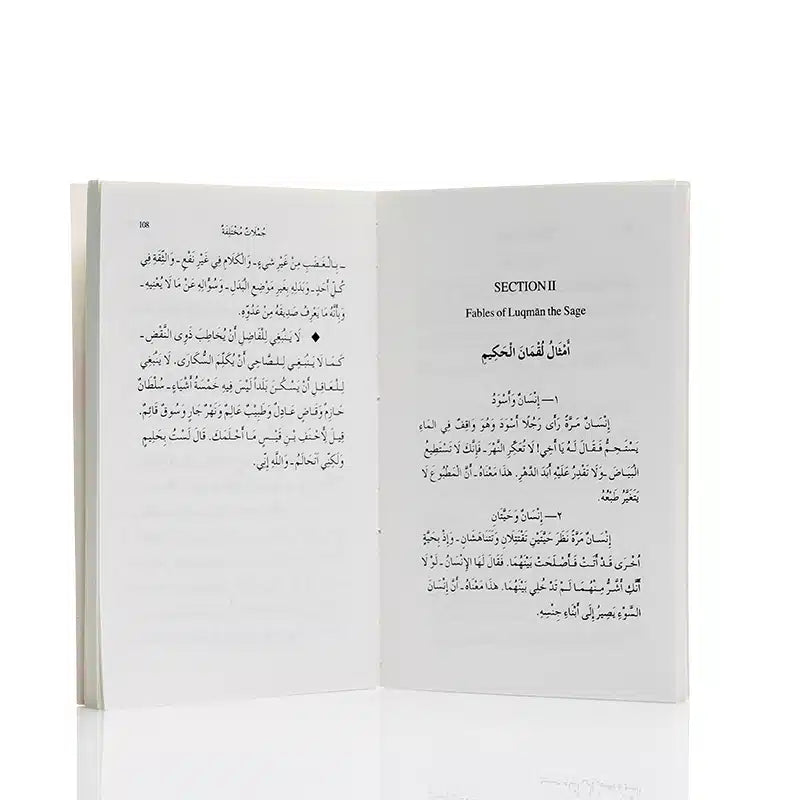 108
جُمْلَاتٌ مُخْتَلِفَةٌ
ـ بِالْغَضَبِ مِنْ غَيْرِ شيءٍ ـ وَالْكَلَامِ فِي غَيْرِ نَفْعٍ ـ وَالثِّقَةِ فِي
كُلِّ أَحَدٍ ـ وَبَدَلِهِ بِغَيرِ مَوْضِعِ الْبَدَلِ ـ وَسُؤَالِهِ عَنْ مَا لَا يُعْنِيهِ ـ
وَبِأَنَّهُ مَا يَعْرِفُ صَدِيقَهُ مِنْ عَدُوِّهِ.
◆ لَا يَنْبَغِي لِلْفَاضِلِ أَنْ يُخَاطِبَ ذَوِى النَّقْصِ ـ
كَمَا لَا يَنْبَغِي لِلصَّاحِي أَنْ يُكَلِّمَ السُّكَارَى. لَا يَنْبَغِي
لِلْعَاقِلِ أَنْ يَسْكُنَ بَلَداً لَيْسَ فِيهِ خَمْسَةُ أَشْيَاءٍ ـ سُلْطَانٌ
حَازِمٌ وَقَاضٍ عَادِلٌ وَطَبِيْبٌ عَالِمٌ وَنَهْرٌ جَارٍ وَسُوقٌ قَائِمٌ.
قِيلَ لِأَحْنَفِ بْنِ قَيْسٍ مَا أَحْلَمَكَ. قَالَ لَسْتُ بِحَلِيمٍ
وَلَكِنِّي أَتَحَالَمُ ـ وَاللَّهِ إنِّي.
SECTION II
Fables of Luqmān the Sage
أَمْثَالُ لُقْمَانَ الْحَكِيمِ
١ـــ إِنْسَانٌ وَأَسْوَدُ
إِنْسَانٌ مَرَّةً رَأَى رَجُلًا أَسْوَدَ وَهُوَ وَاقِفٌ فِي المَاءِ
يَسْتَحِمُّ فَقَالَ لَهُ يَا أَخِي! لَا تُعَكِّرِ النَّهْرَ ـ فَإِنَّكَ لَا تَسْتَطِيعُ
الْبَيَاضَ ـ وَلَا تَقْدِرُ عَلَيْهِ أَبَدَ الدَّهْرِ. هذَا مَعْنَاهُ ـ أَنَّ الْمَطْبُوعَ لَا
يَتَغَيَّرُ طَبْعُهُ.
٢ـــ إِنْسَانٌ وَحَيَّتَانِ
إِنْسَانٌ مَرَّةً نَظَرَ حَيَّتَيْنِ تَقْتَتِلَانِ وَتَتَنَاهَشَانِ ـ وَإِذْ بِحَيَّةٍ
أُخْرَى قَدْ أَتَتْ فَأَصْلَحَتْ بَيْنَهُمَا. فَقَالَ لَهَا الإِنْسَانُ ـ لَوْ لَا
أَنَّكِ أَشَرُّ مِنْهُمَا لَمْ تَدْخُلِي بَيْنَهُمَا. هذَا مَعْنَاهُ ـ أَنَّ إِنْسَانَ
السُّوْءِ يَصِيرُ إِلَى أَبْنَاءِ جِنْسِهِ.